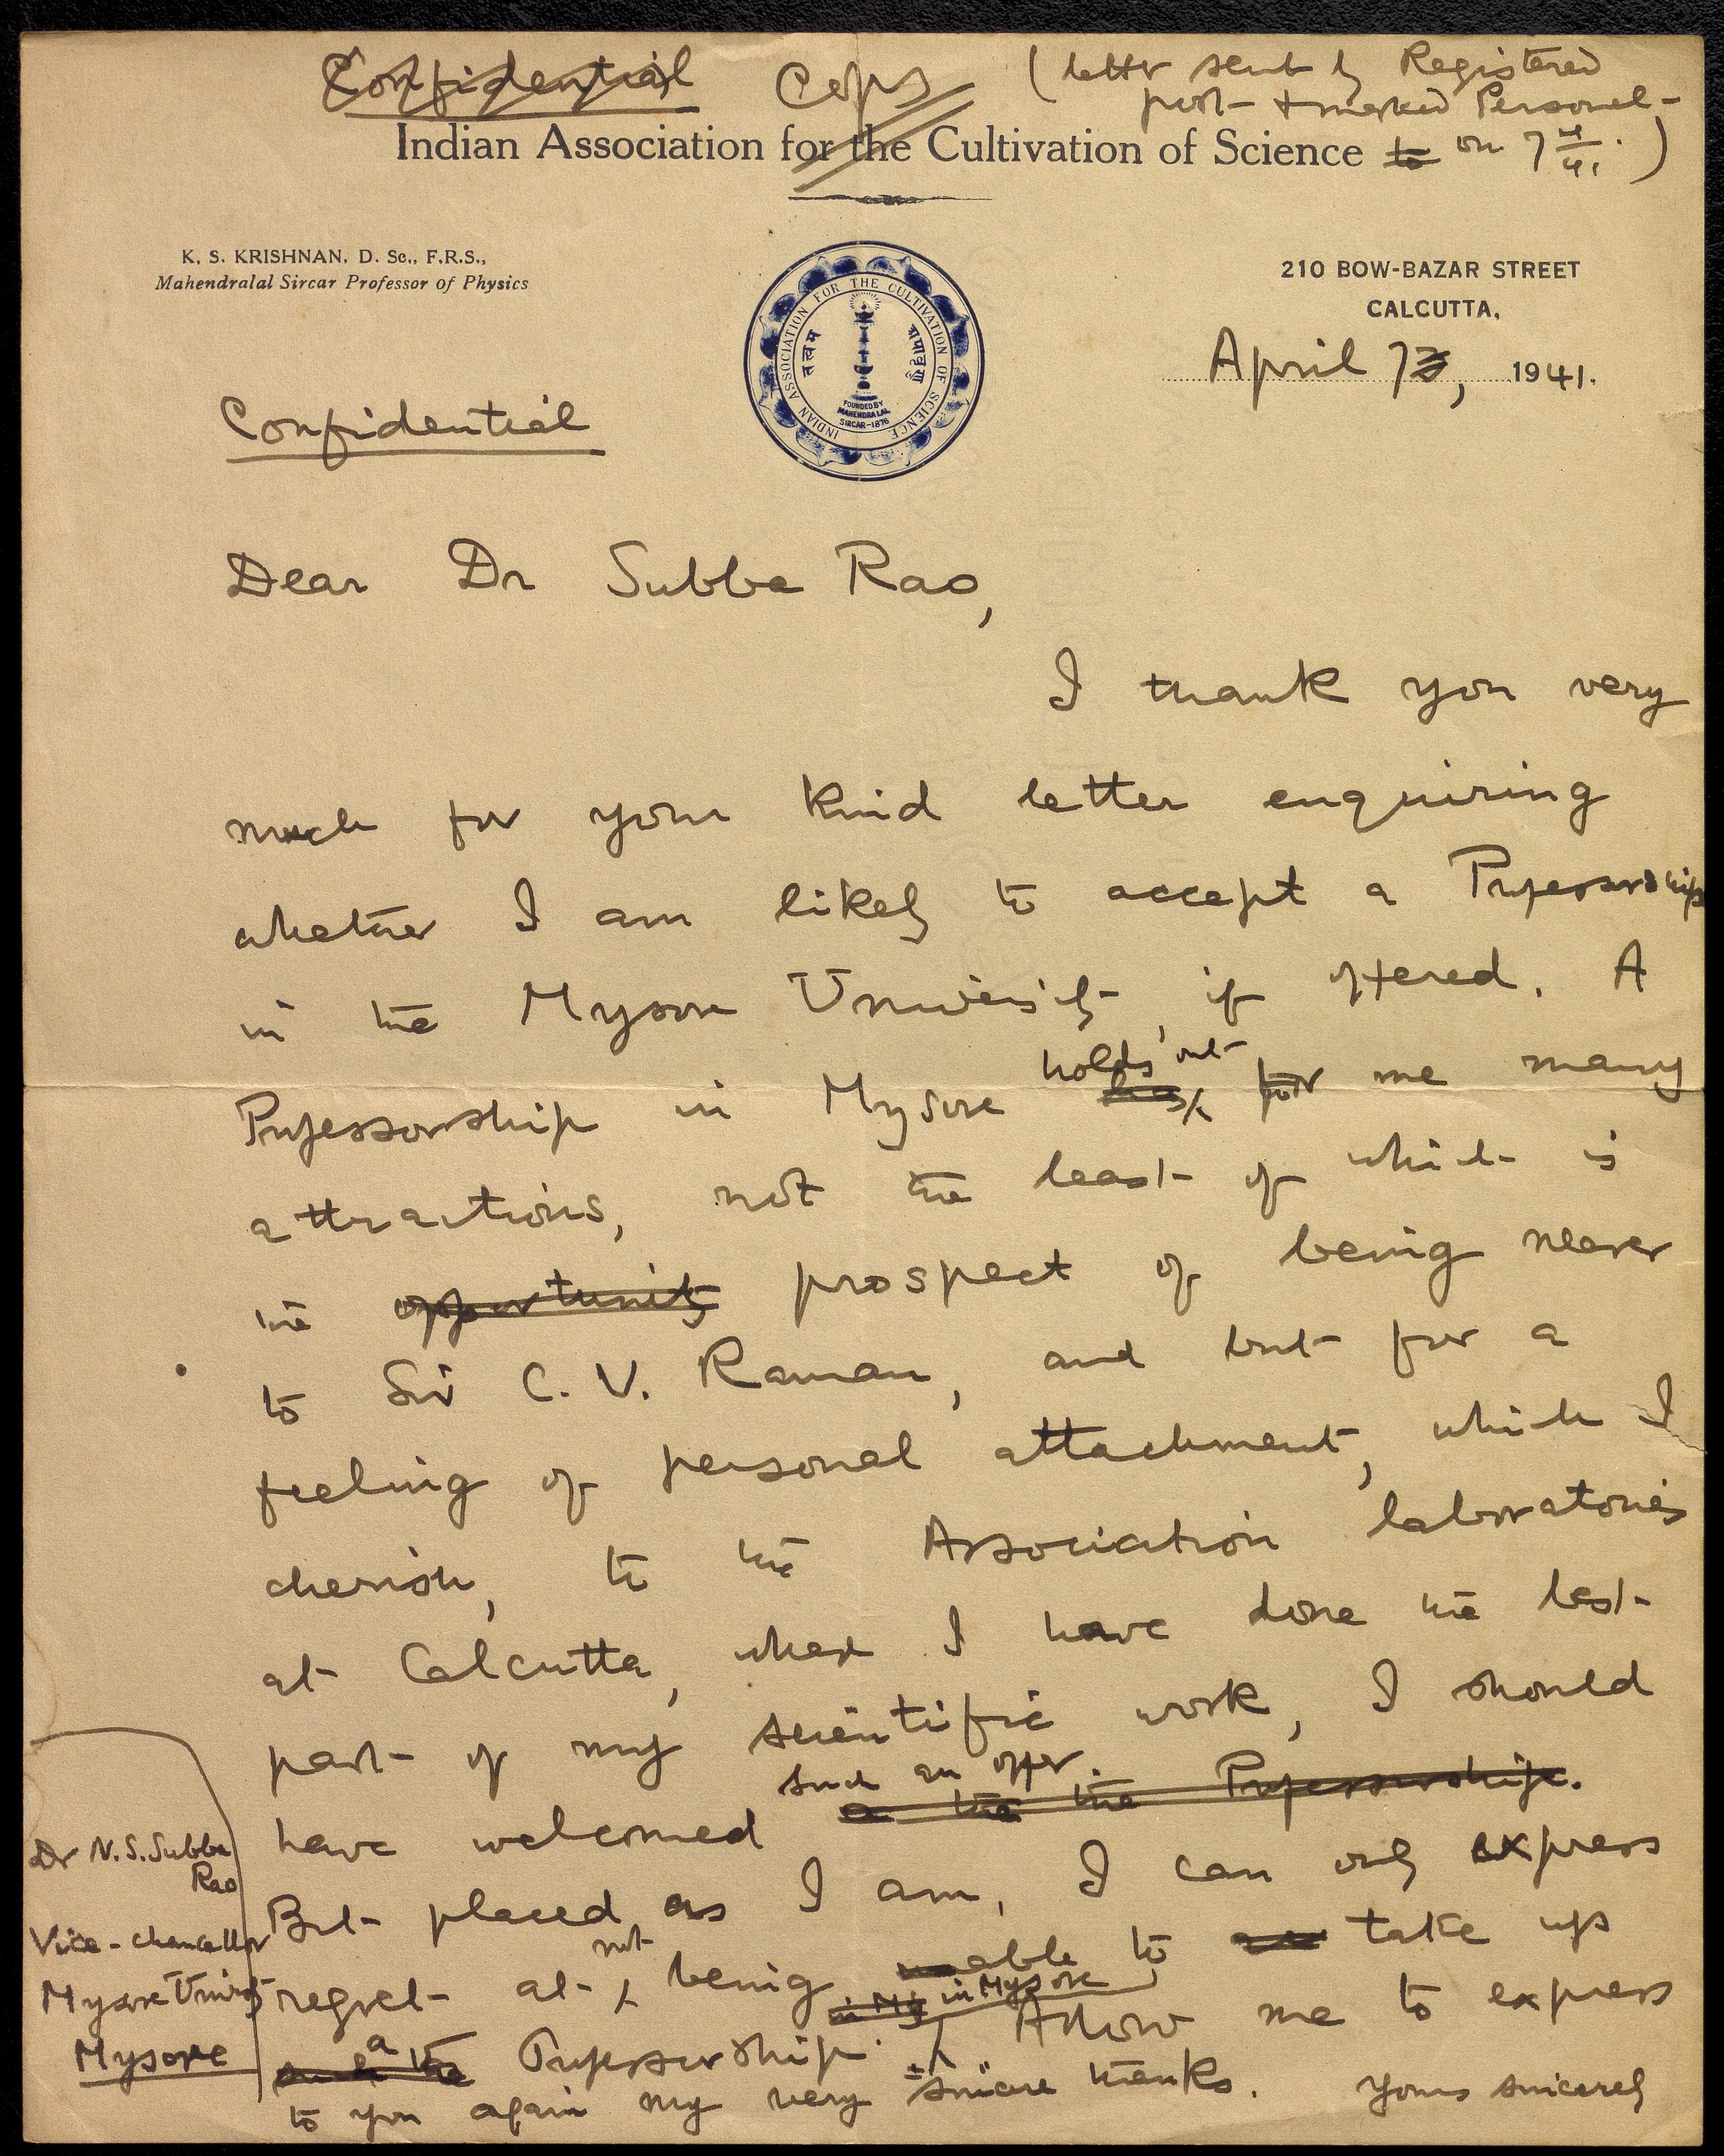 Confidential Copy (letter sent by Registered
post & marked Personal
Indian Association for the Cultivation of Science to on 7 4/41.)
K. S. KRISHNAN, D. Sc., F.R.S.,
Mahendralal Sircar Professor of Physics
INDIAN ASSOCIATION FOR THE CULTIVATION OF SCIENCE
FOUNDED BY
MAHENDRA LAL
SIRCAR-1876
210 BOW-BAZAR STREET
CALCUTTA,
April 7, 1941.
Confidential
Dear Dr Subba Rao,
I thank you very
much for your kind letter enquiring
whether I am likely to accept a Professorship
in the Mysore University, if offered. A
holds out
Professorship in Mysore has for me many
attractions, not the least of which is
the opportunity prospect of being nearer
to Sir C. V. Raman, and but for a
feeling of personal attachment, which I
cherish, to the Association laboratories
at Calcutta, where I have done the best
part of my scientific work, I should
such an offer.
have welcomed the Professorship.
But placed as I am, I can only express
not
regret at being unable to take up
in My in Mysore
a
such the Professorship. Allow me to express
to you again my very sincere thanks. Yours sincerely
Dr N. S. Subba
Rao
Vice-Chancellor
Mysore University
Mysore